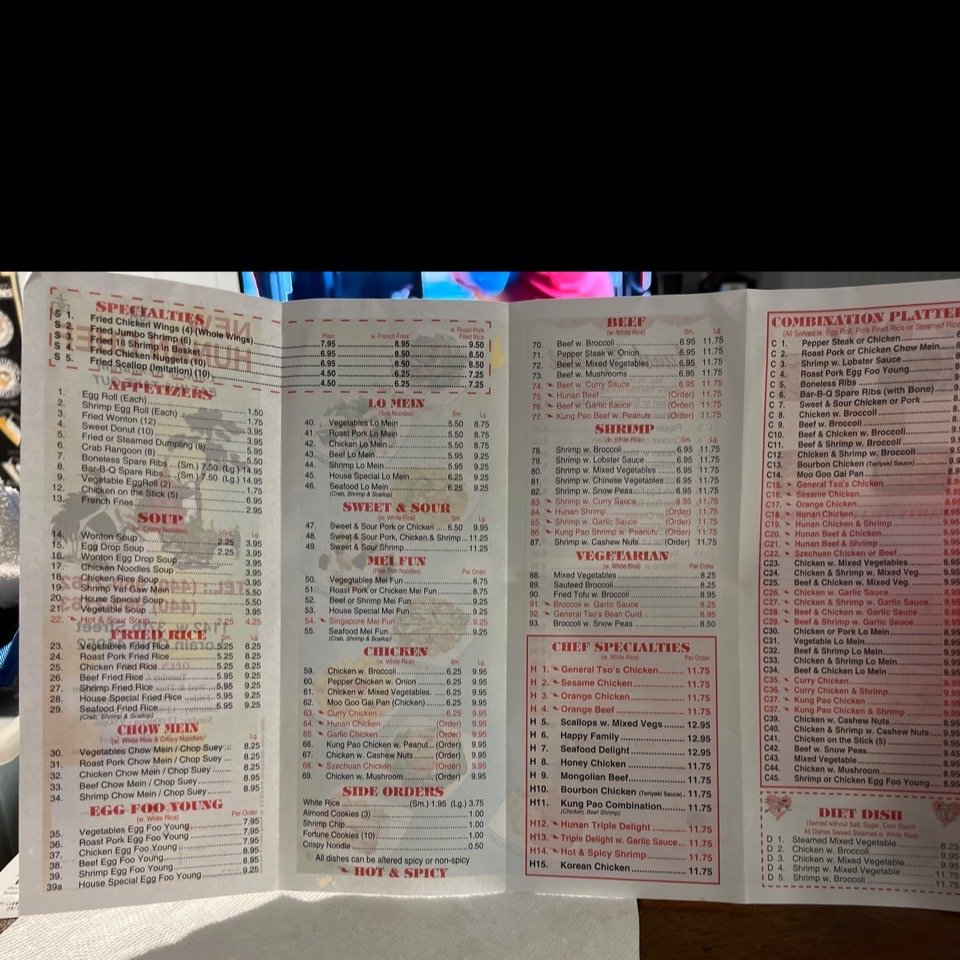 SPECIALTIES
Plain w. French Fries w. Roast Pork Fried Rice
S 1. Fried Chicken Wings (4) (Whole Wings) 7.95 8.95 9.50
S 2. Fried Jumbo Shrimp (6) 6.95 8.50 8.50
S 3. Fried 18 Shrimp in Basket 6.95 8.50 8.50
S 4. Fried Chicken Nuggets (10) 4.50 6.25 7.25
S 5. Fried Scallop (Imitation) (10) 4.50 6.25 7.25
APPETIZERS
1. Egg Roll (Each) 1.50
2. Shrimp Egg Roll (Each) 1.75
3. Fried Wonton (12) 3.95
4. Sweet Donut (10) 3.95
5. Fried or Steamed Dumpling (8)
6. Crab Rangoon (8) 5.50
7. Boneless Spare Ribs (Sm.) 7.50 (Lg.) 14.95
8. Bar-B-Q Spare Ribs (Sm.) 7.50 (Lg.) 14.95
9. Vegetable EggRoll (2) 1.75
12. Chicken on the Stick (5) 6.95
13. French Fries 2.95
SOUP
(w. Crispy Noodles)
14. Wonton Soup 2.25 3.95
15. Egg Drop Soup 2.25 3.95
16. Wonton Egg Drop Soup 3.95
17. Chicken Noodles Soup 3.95
18. Chicken Rice Soup 3.95
19. Shrimp Yat Gaw Mein 5.50
20. House Special Soup 5.50
21. Vegetable Soup
22. Hot & Sour Soup 2.25 4.25
FRIED RICE
Sm. Lg.
23. Vegetables Fried Rice 5.25 8.25
24. Roast Pork Fried Rice 5.25 8.25
25. Chicken Fried Rice 5.25 8.25
26. Beef Fried Rice 5.95 9.25
27. Shrimp Fried Rice 5.95 9.25
28. House Special Fried Rice 5.95 9.25
29. Seafood Fried Rice 5.95 9.25
(Crab, Shrimp & Scallop)
CHOW MEIN
(w. White Rice & Crispy Noodles)
Lg.
30. Vegetables Chow Mein / Chop Suey 8.25
31. Roast Pork Chow Mein / Chop Suey 8.25
32. Chicken Chow Mein / Chop Suey 8.25
33. Beef Chow Mein / Chop Suey 8.95
34. Shrimp Chow Mein / Chop Suey 8.95
EGG FOO YOUNG
(w. White Rice)
Per Order
35. Vegetables Egg Foo Young 7.95
36. Roast Pork Egg Foo Young 7.95
37. Chicken Egg Foo Young 7.95
38. Beef Egg Foo Young 8.95
39. Shrimp Egg Foo Young 8.95
39a House Special Egg Foo Young 9.25
LO MEIN
(Soft Noodles)
Sm. Lg.
40. Vegetables Lo Mein 5.50 8.75
41. Roast Pork Lo Mein 5.50 8.75
42. Chicken Lo Mein 5.50 8.75
43. Beef Lo Mein 5.95 9.25
44. Shrimp Lo Mein 5.95 9.25
45. House Special Lo Mein 6.25 9.25
46. Seafood Lo Mein 6.25 9.25
(Crab, Shrimp & Scallop)
SWEET & SOUR
(w. White Rice)
Sm. Lg.
47. Sweet & Sour Pork or Chicken 6.50 9.95
48. Sweet & Sour Pork, Chicken & Shrimp 11.25
49. Sweet & Sour Shrimp 11.25
MEI FUN
(Rice Thin Noodles)
Per Order
50. Vegegtables Mei Fun 8.75
51. Roast Pork or Chicken Mei Fun 8.75
52. Beef or Shrimp Mei Fun 9.25
53. House Special Mei Fun 9.25
54. Singapore Mei Fun 9.25
55. Seafood Mei Fun 9.25
(Crab, Shrimp & Scallop)
CHICKEN
(w. White Rice)
Sm. Lg.
59. Chicken w. Broccoli 6.25 9.95
60. Pepper Chicken w. Onion 6.25 9.95
61. Chicken w. Mixed Vegetables 6.25 9.95
62. Moo Goo Gai Pan (Chicken) 6.25 9.95
63. Curry Chicken 6.25 9.95
64. Hunan Chicken (Order) 9.95
65. Garlic Chicken (Order) 9.95
66. Kung Pao Chicken w. Peanut (Order) 9.95
67. Chicken w. Cashew Nuts (Order) 9.95
68. Szechuan Chicken (Order) 9.95
69. Chicken w. Mushroom (Order) 9.95
SIDE ORDERS
White Rice (Sm.) 1.95 (Lg.) 3.75
Almond Cookies (3) 1.00
Shrimp Chip 1.00
Fortune Cookies (10) 1.00
Crispy Noodle 0.50
All dishes can be altered spicy or non-spicy
HOT & SPICY
BEEF
(w. White Rice)
Sm. Lg.
70. Beef w. Broccoli 6.95 11.75
71. Pepper Steak w. Onion 6.95 11.75
72. Beef w. Mixed Vegetables 6.95 11.75
73. Beef w. Mushrooms 6.95 11.75
74. Beef w. Curry Sauce 6.95 11.75
75. Hunan Beef (Order) 11.75
76. Beef w. Garlic Sauce (Order) 11.75
77. Kung Pao Beef w. Peanuts (Order) 11.75
SHRIMP
(w. White Rice)
Sm. Lg.
78. Shrimp w. Broccoli 6.95 11.75
79. Shrimp w. Lobster Sauce 6.95 11.75
80. Shrimp w. Mixed Vegetables 6.95 11.75
81. Shrimp w. Chinese Vegetables 6.95 11.75
82. Shrimp w. Snow Peas 6.95 11.75
83. Shrimp w. Curry Sauce 6.95 11.75
84. Hunan Shrimp (Order) 11.75
85. Shrimp w. Garlic Sauce (Order) 11.75
86. Kung Pao Shrimp w. Peanuts (Order) 11.75
87. Shrimp w. Cashew Nuts (Order) 11.75
VEGETARIAN
(w. White Rice)
Per Order
88. Mixed Vegetables 8.25
89. Sauteed Broccoli 8.25
90. Fried Tofu w. Broccoli 8.95
91. Broccoli w. Garlic Sauce 8.25
92. General Tso's Bean Curd 8.95
93. Broccoli w. Snow Peas 8.50
CHEF SPECIALTIES
(w. White Rice)
Per Order
H 1. General Tso's Chicken 11.75
H 2. Sesame Chicken 11.75
H 3. Orange Chicken 11.75
H 4. Orange Beef 11.75
H 5. Scallops w. Mixed Vegs 12.95
H 6. Happy Family 12.95
H 7. Seafood Delight 12.95
H 8. Honey Chicken 11.75
H 9. Mongolian Beef 11.75
H10. Bourbon Chicken (Teriyaki Sauce) 11.75
H11. Kung Pao Combination 11.75
(Chicken, Beef Shrimp)
H12. Hunan Triple Delight 11.75
H13. Triple Delight w. Garlic Sauce 11.75
H14. Hot & Spicy Shrimp 11.75
H15. Korean Chicken 11.75
COMBINATION PLATTE
(All Served w. Egg Roll, Pork Fried Rice or Steamed Rice
C 1. Pepper Steak or Chicken
C 2. Roast Pork or Chicken Chow Mein
C 3. Shrimp w. Lobster Sauce
C 4. Roast Pork Egg Foo Young
C 5. Boneless Ribs
C 6. Bar-B-Q Spare Ribs (with Bone)
C 7. Sweet & Sour Chicken or Pork
C 8. Chicken w. Broccoli
C 9. Beef w. Broccoli
C10. Beef & Chicken w. Broccoli
C11. Beef & Shrimp w. Broccoli
C12. Chicken & Shrimp w. Broccoli
C13. Bourbon Chicken (Teriyaki Sauce)
C14. Moo Goo Gai Pan
C15. General Tso's Chicken
C16. Sesame Chicken
C17. Orange Chicken
C18. Hunan Chicken
C19. Hunan Chicken & Shrimp
C20. Hunan Beef & Chicken
C21. Hunan Beef & Shrimp
C22. Szechuan Chicken or Beef
C23. Chicken w. Mixed Vegetables
C24. Chicken & Shrimp w. Mixed Veg
C25. Beef & Chicken w. Mixed Veg.
C26. Chicken w. Garlic Sauce
C27. Chicken & Shrimp w. Garlic Sauce
C28. Beef & Chicken w. Garlic Sauce
C29. Beef & Shrimp w. Garlic Sauce
C30. Chicken or Pork Lo Mein
C31. Vegetable Lo Mein
C32. Beef & Shrimp Lo Mein
C33. Chicken & Shrimp Lo Mein
C34. Beef & Chicken Lo Mein
C35. Curry Chicken
C36. Curry Chicken & Shrimp
C37. Kung Pao Chicken
C37. Kung Pao Chicken & Shrimp
C39. Chicken w. Cashew Nuts
C40. Chicken & Shrimp w. Cashew Nuts
C41. Chicken on the Stick (5)
C42. Beef w. Snow Peas
C43. Mixed Vegetable
C44. Chicken w. Mushroom
C45. Shrimp or Chicken Egg Foo Young
DIET DISH
(Served without Salt, Sugar, Corn Starch
All Dishes Served Steamed w. White Rice)
D 1. Steamed Mixed Vegetable 8.25
D 2. Chicken w. Broccoli
D 3. Chicken w. Mixed Vegetable
D 4. Shrimp w. Mixed Vegetable 11.75
D 5. Shrimp w. Broccoli 11.75